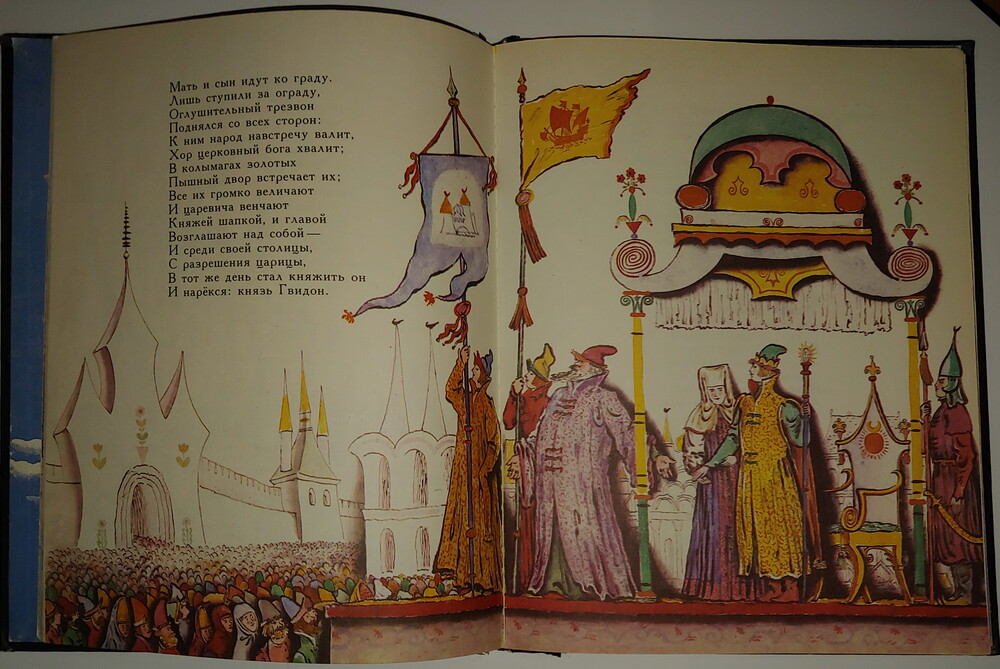 Мать и сын идут ко граду.
Лишь ступили за ограду,
Оглушительный трезвон
Поднялся со всех сторон:
К ним народ навстречу валит,
Хор церковный бога хвалит;
В колымагах золотых
Пышный двор встречает их;
Все их громко величают
И царевича венчают
Княжей шапкой, и главой
Возглашают над собой—
И среди своей столицы,
С разрешения царицы,
В тот же день стал княжить он
И нарёкся: князь Гвидон.